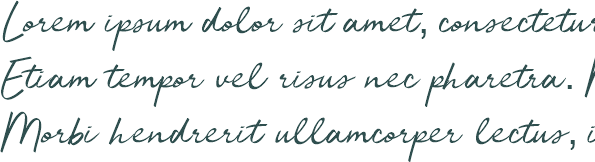 Lorem ipsum dolor sit amet, consectetur
Etiam tempor vel risus nec pharetra.
Morbi hendrerit ullamcorper lectus,